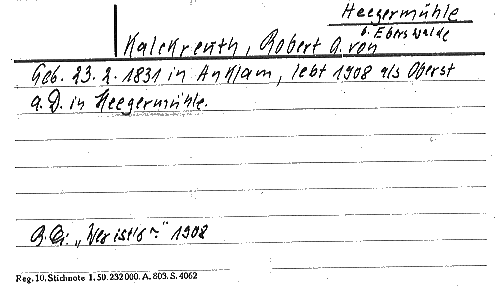 Heegermühle
b. Eberswalde
Kalckreuth, Robert A. von
Geb. 23. 2. 1831 in Anklam, lebt 1908 als Oberst
a. D. in Heegermühle.
"Wer ist's?" 1908
Reg. 10. Stichnote 1. 50. 232000. A. 803. S. 4062